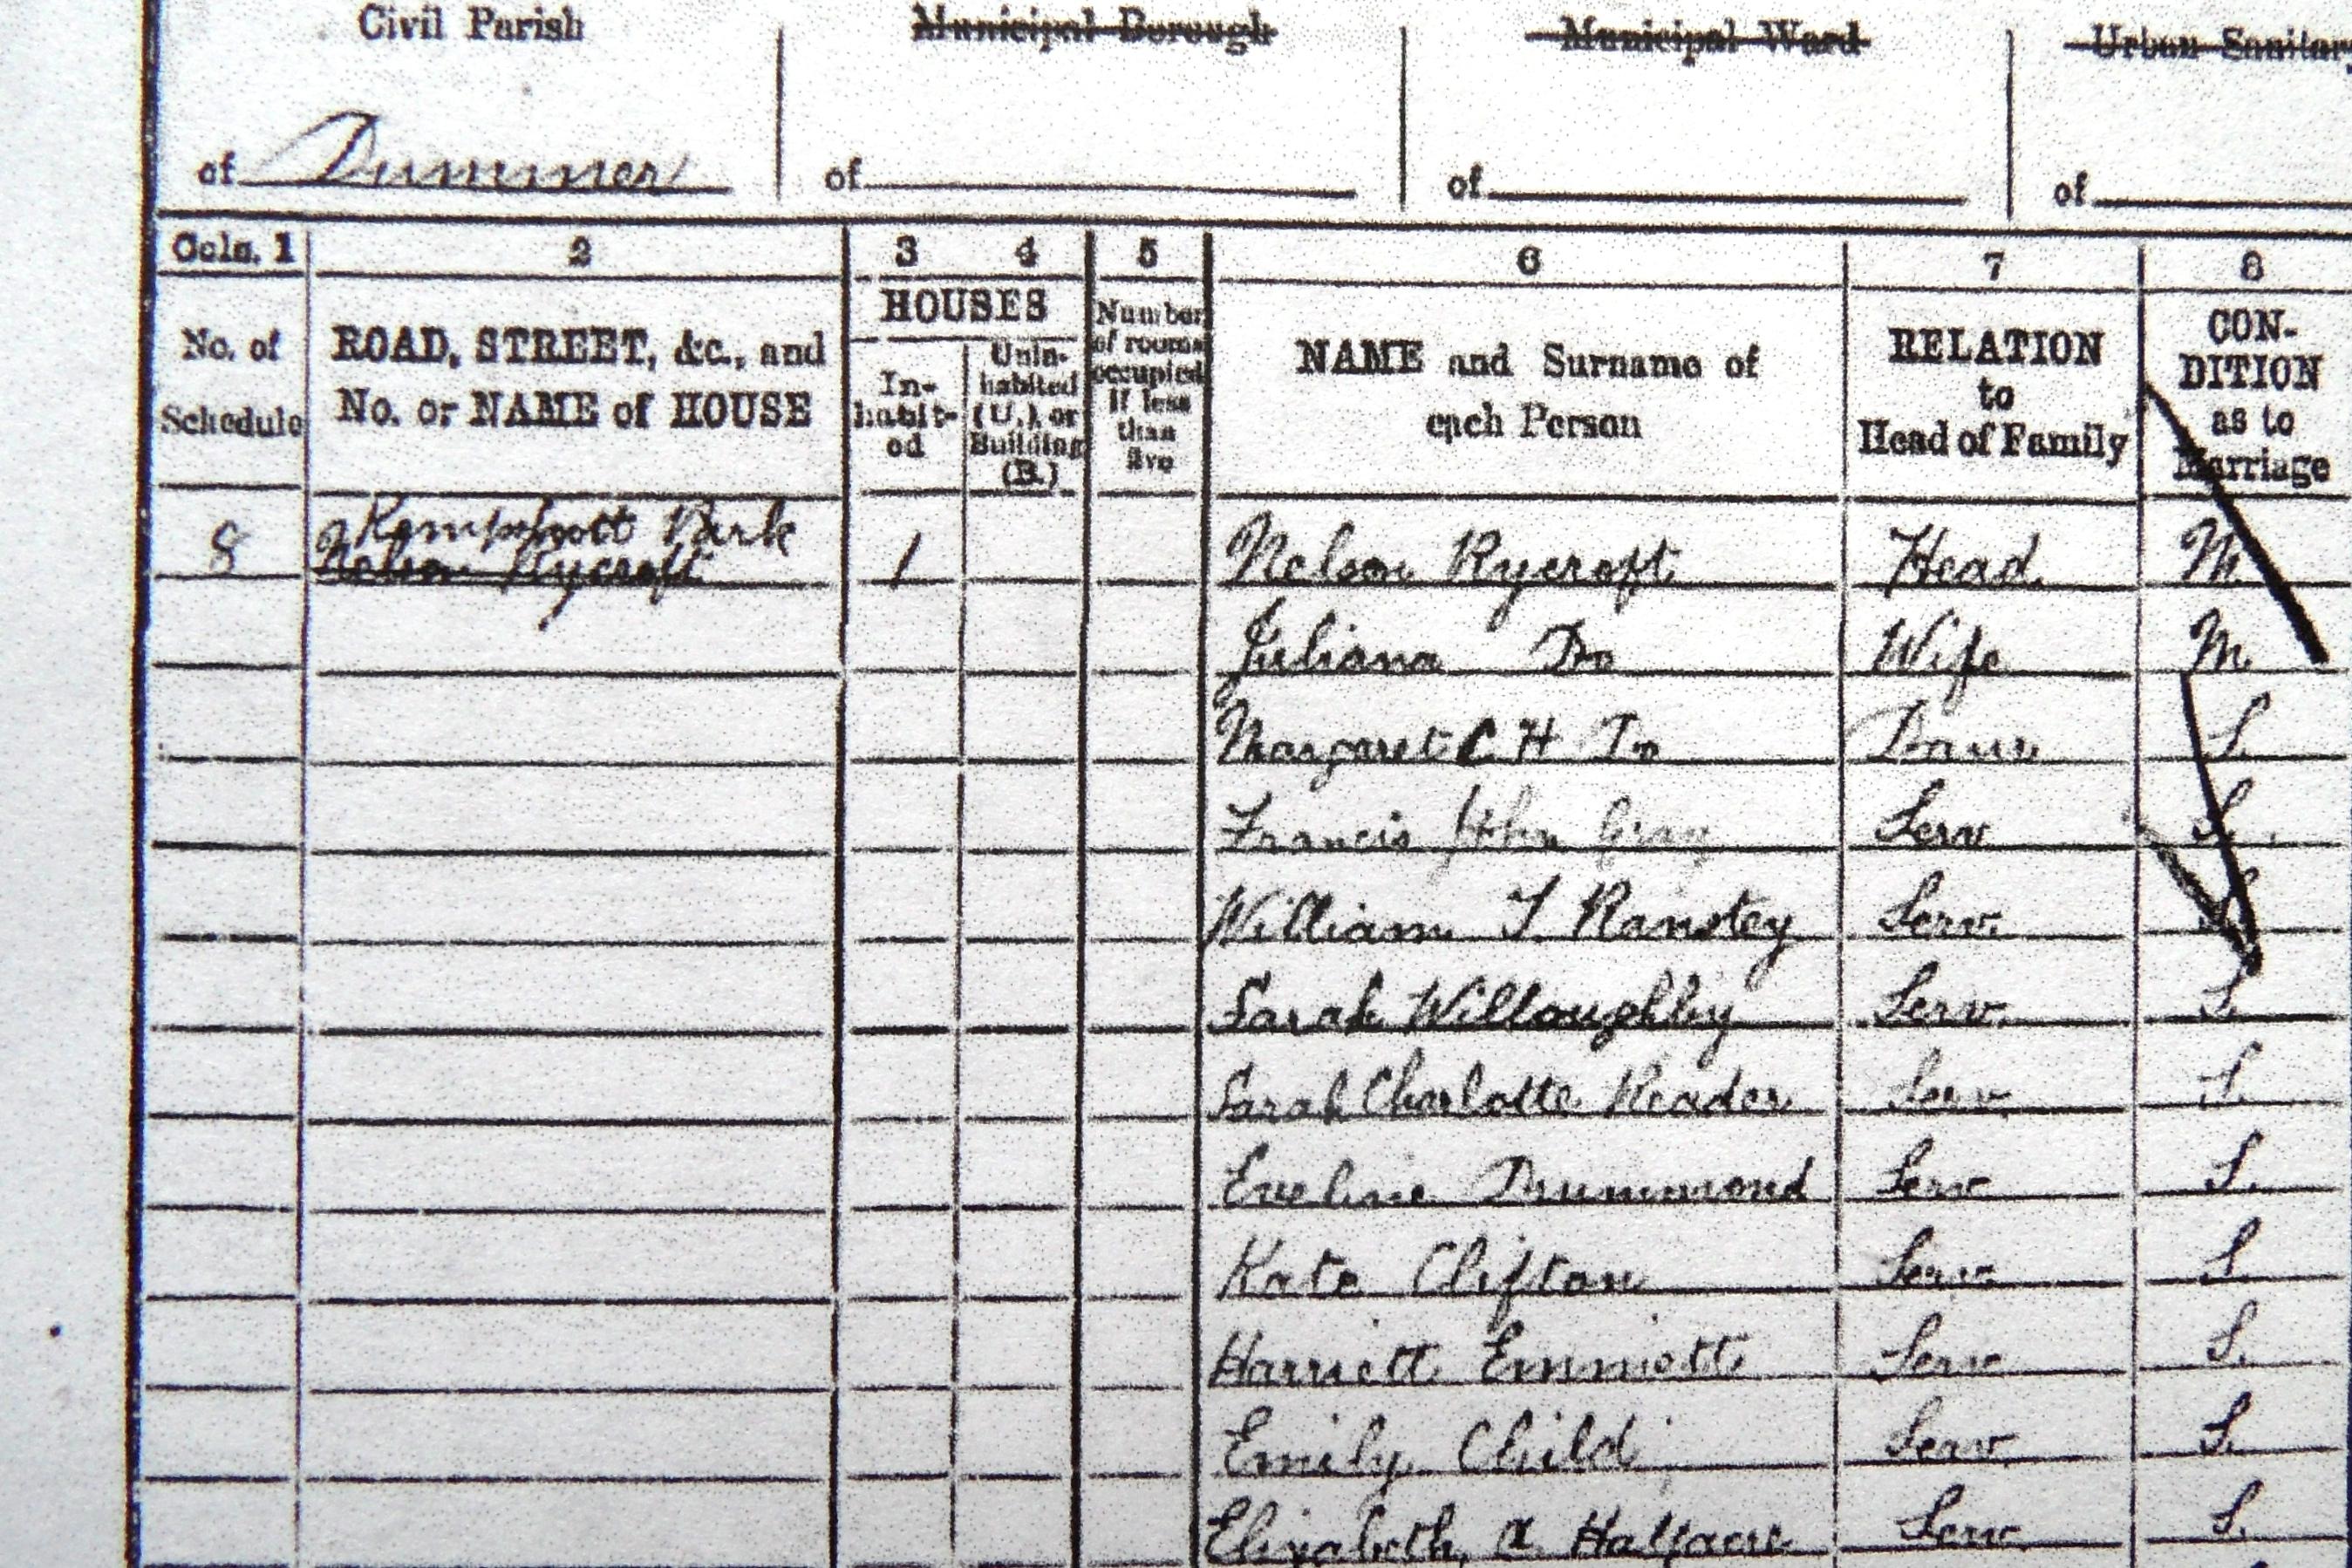 Civil Parish Municipal Borough Municipal Ward Urban Sanitary
of Dummer of of of
Cols. 1 2 3 4 5 6 7 8
No. of Schedule
ROAD, STREET, &c., and
No. or NAME of HOUSE
HOUSES
In-
habit-
ed
Unin-
habited
(U.) or
Building
(B.)
Number
of rooms
occupied
if less
than
five
NAME and Surname of
each Person
RELATION
to
Head of Family
CON-
DITION
as to
Marriage
Kempshott Park
8 Nelson Rycroft 1 Nelson Rycroft Head M
Juliana Do Wife M
Margaret C H Do S
Francis John Gray Serv S
William T. Ranstey Serv. S
Sarah Willoughby Serv. S
Sarah Charlotte Reader Serv. S
Eveline Drummond Serv S.
Kate Clifton Serv S
Harriett Emmett Serv S.
Emily Child Serv S.
Elizabeth A Halfacre Serv S.